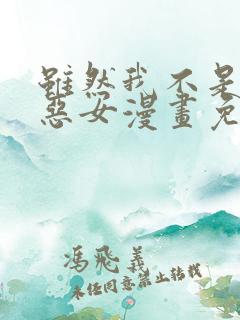 雖然我不是
惡女漫畫免
馮飛義
未經同意禁止转载